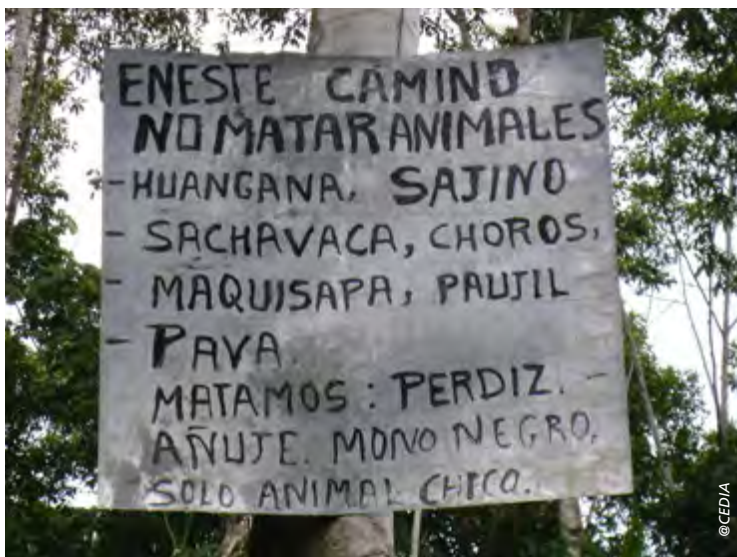 ENESTE CAMINO
NO MATAR ANIMALES
- HUANGANA, SAJINO
- SACHAVACA, CHOROS,
- MAQUISAPA, PAUJIL
- PAVA.
MATAMOS: PERDIZ. -
AÑUJE. MONO NEGRO,
SOLO ANIMAL CHICO.
@CEDIA